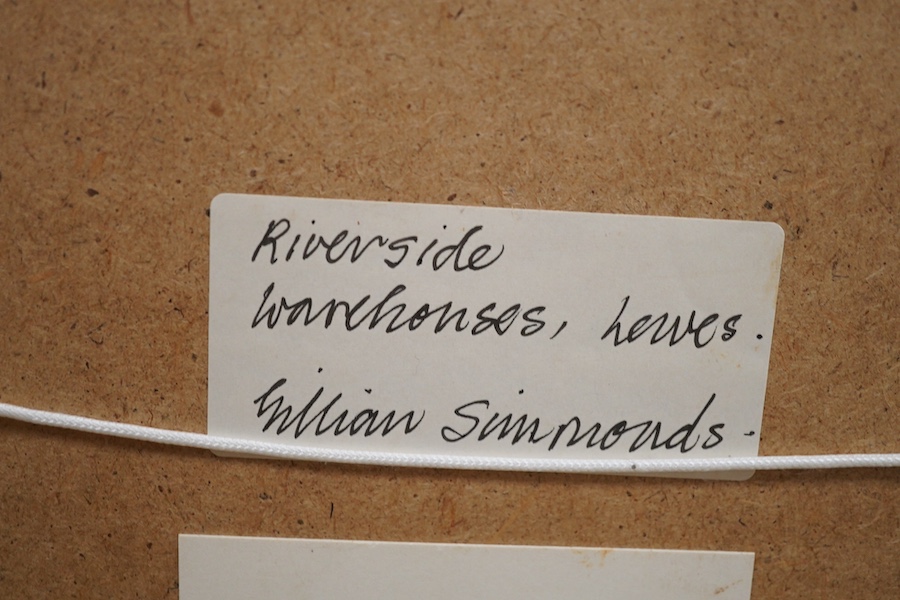 Riverside
Warehouses, Lewes.
Gillian Simmonds.